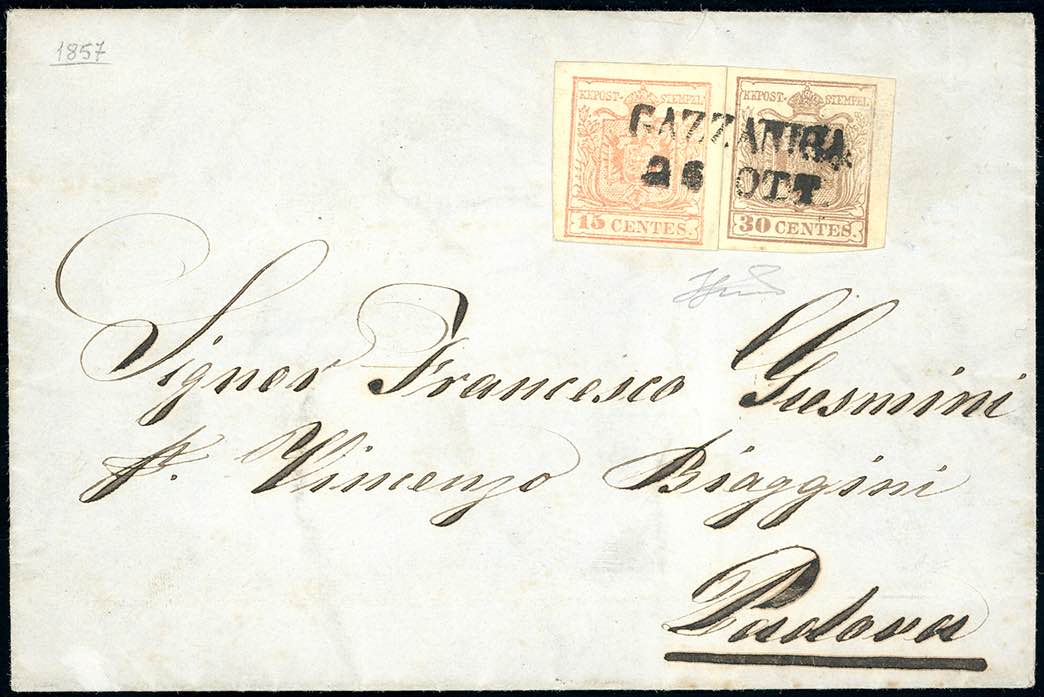 1857
KKPOST-STEMPEL KKPOST-STEMPEL
GAZZANIGA
26 OTT.
15 CENTES. 30 CENTES.
Signor Francesco Gusmini
Vincenzo Biaggini
Padova